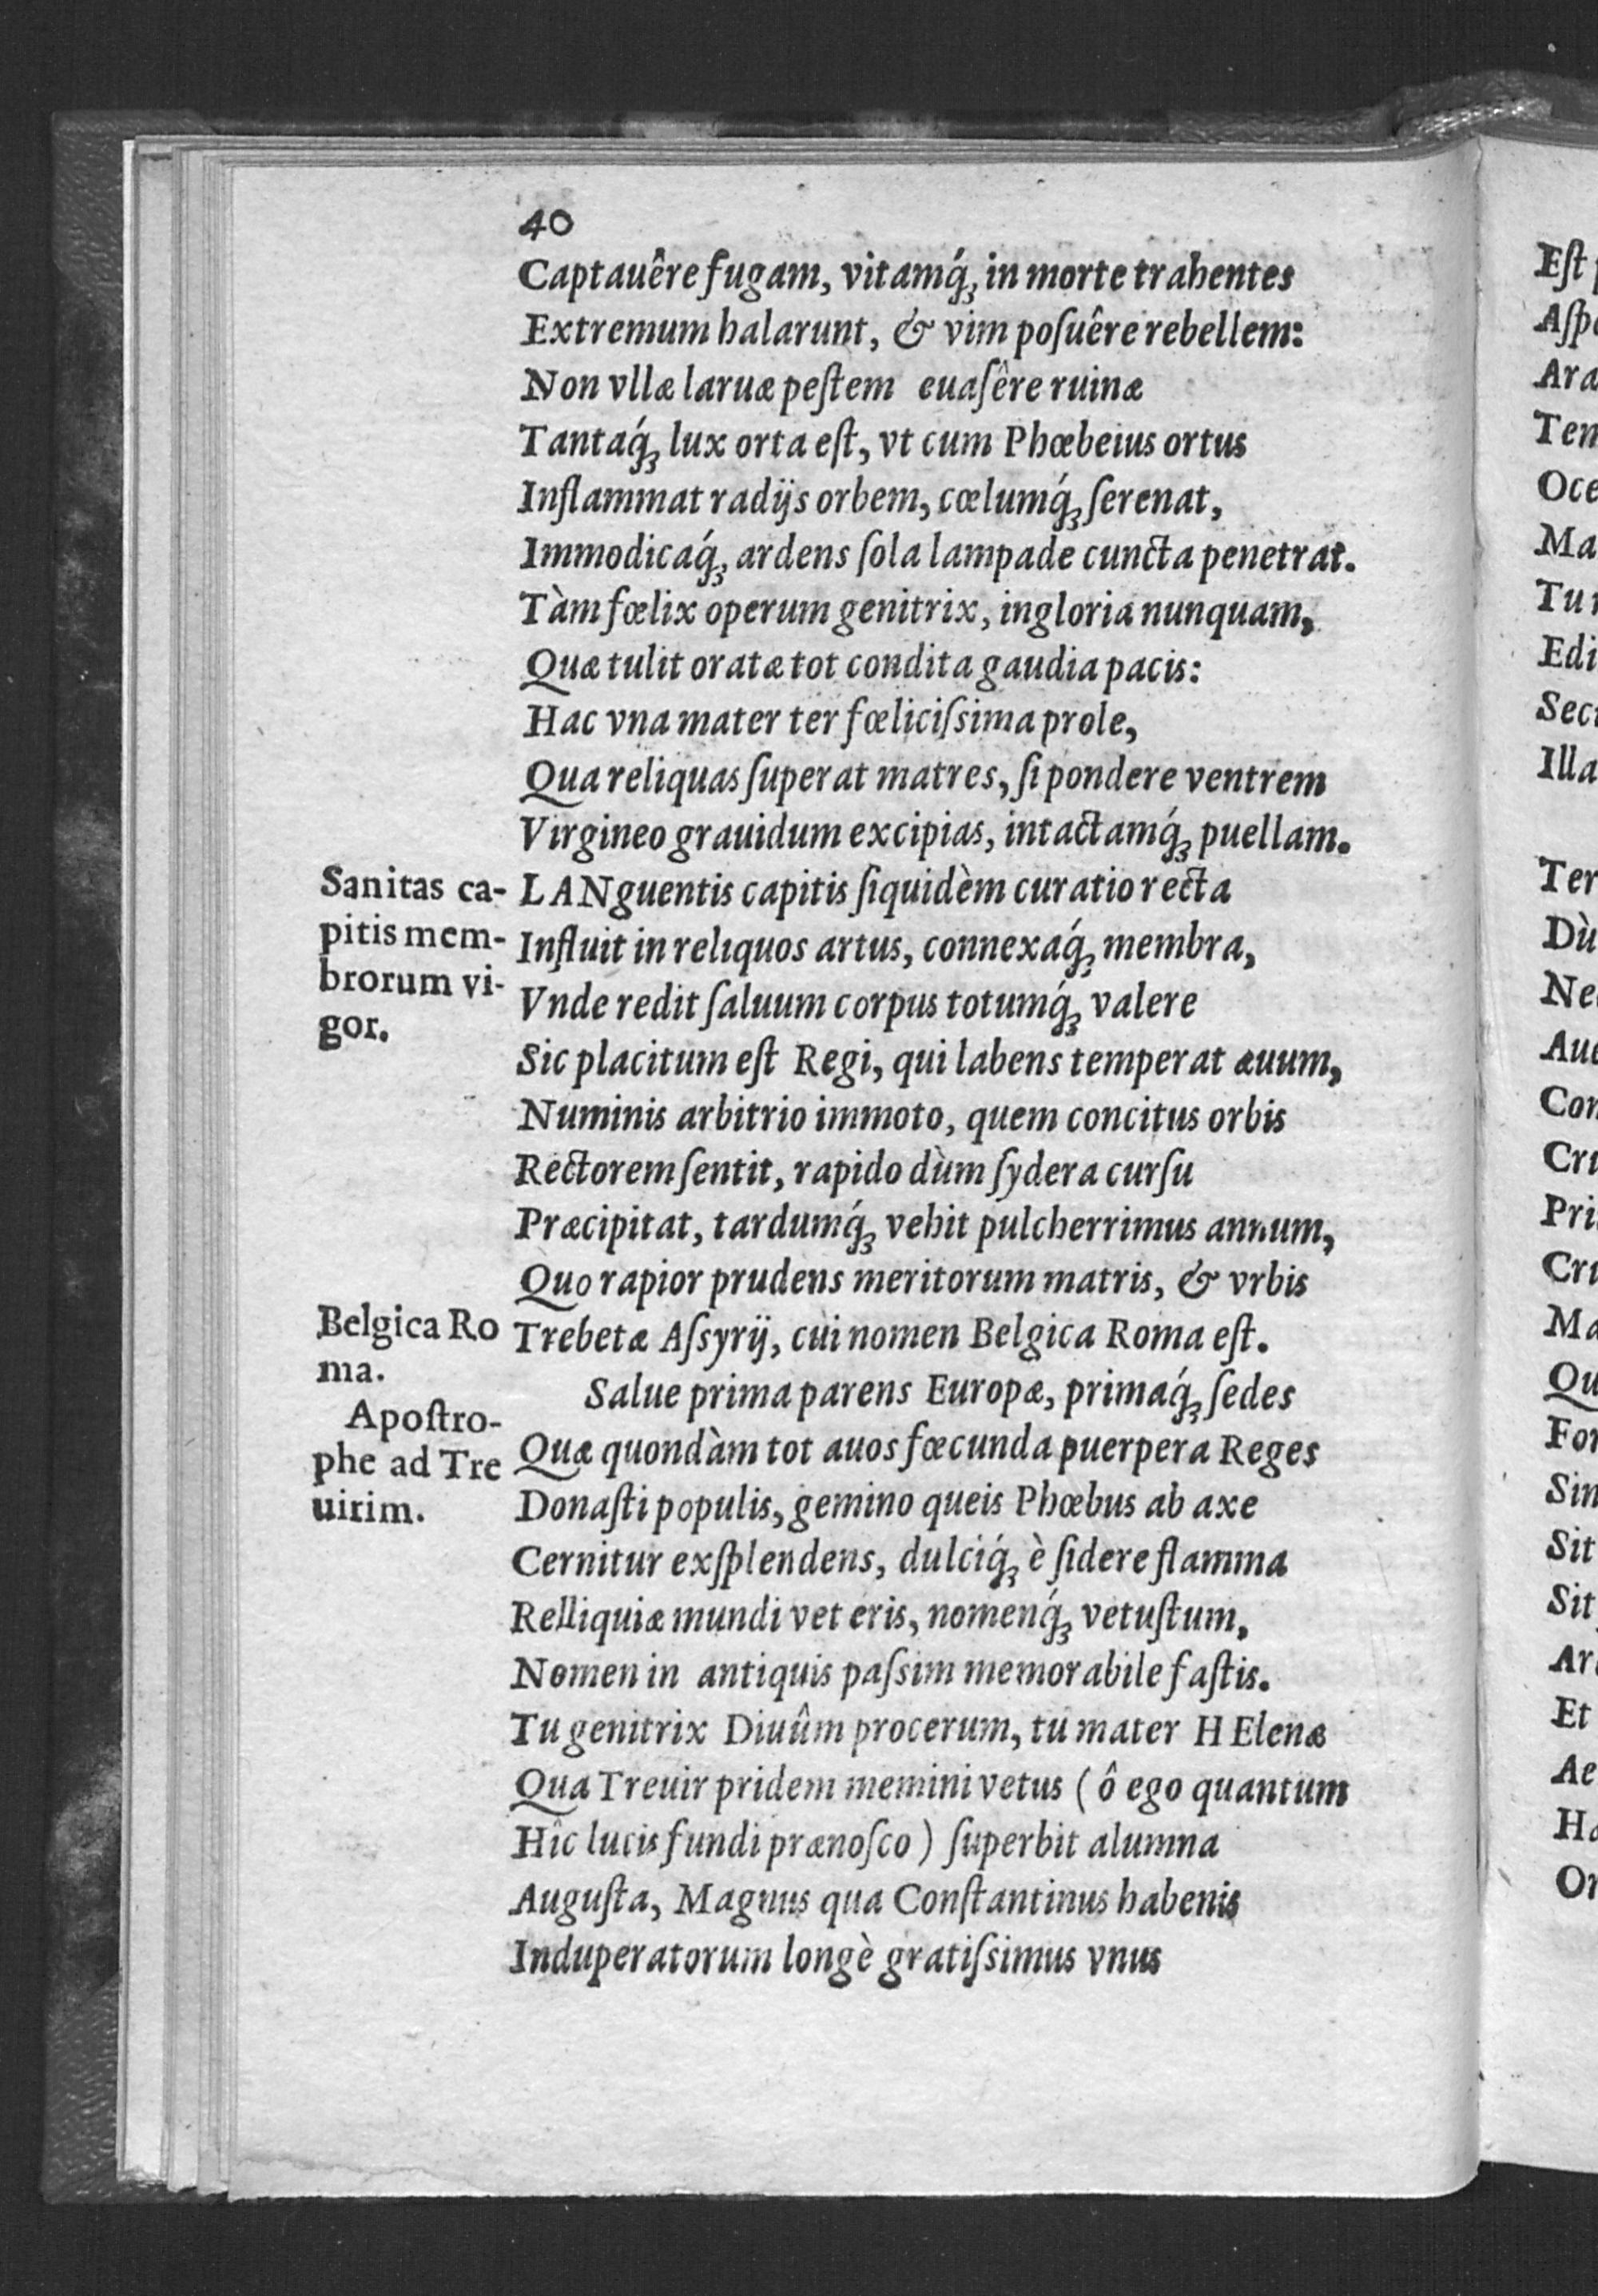 40
Captauêre fugam, vitamq́ꝫ in morte trahentes
Extremum halarunt, & vim poſuêre rebellem:
Non vllæ laruæ peſtem euaſêre ruinæ
Tantaq́ꝫ lux orta eſt, vt cum Phœbeius ortus
Inflammat radijs orbem, cœlumq́ꝫ ſerenat,
Immodicaq́ꝫ ardens ſola lampade cuncta penètrat.
Tàm fœlix operum genitrix, ingloria nunquam,
Quæ tulit oratæ tot condita gaudia pacis:
Hac vna mater ter fœliciſsima prole,
Qua reliquas ſuperat matres, ſi pondere ventrem
Virgineo grauidum excipias, intactamq́ꝫ puellam.
Sanitas ca-
pitis mem-
brorum vi-
gor.
LANguentis capitis ſiquidèm curatio recta
Influit in reliquos artus, connexaq́ꝫ membra,
Vnde redit ſaluum corpus totumq́ꝫ valere
Sic placitum eſt Regi, qui labens temperat æuum,
Numinis arbitrio immoto, quem concitus orbis
Rectorem ſentit, rapido dùm ſydera curſu
Præcipitat, tardumq́ꝫ vehit pulcherrimus annum,
Quo rapior prudens meritorum matris, & vrbis
Belgica Ro
ma.
Trebetæ Aſsyrij, cui nomen Belgica Roma eſt.
Apoſtro-
phe ad Tre
uirim.
Salue prima parens Europæ, primaq́ꝫ ſedes
Quæ quondàm tot auos fœcunda puerpera Reges
Donaſti populis, gemino queis Phœbus ab axe
Cernitur exſplendens, dulciq́ꝫ è ſidere flamma
Relliquiæ mundi veteris, nomenq́ꝫ vetuſtum,
Nomen in antiquis paſsim memorabile faſtis.
Tu genitrix Diuûm procerum, tu mater HElenæ
Qua Treuir pridem memini vetus (ô ego quantum
Hîc lucis fundi prænoſco) ſuperbit alumna
Auguſta, Magnus qua Conſtantinus habenis
Induperatorum longè gratiſsimus vnus
Eſt
Ara
Ma
Edi
Illa
Ter
Dù
Pri
Qu
For
Sin
Sit
Sit
Et
Ae